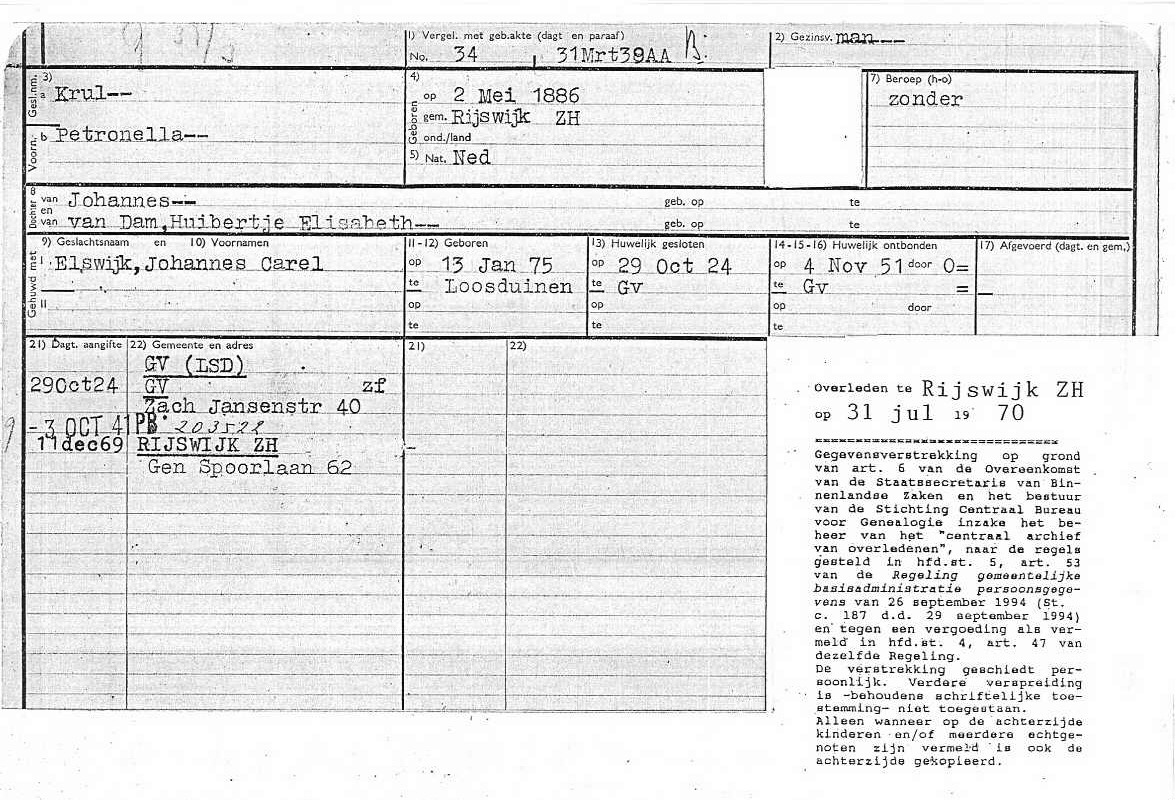 1) Vergel. met geb.akte (dagt en paraaf)
No. 34 31Mrt39AA
2) Gezinsv. man--
Gesl.nm. 3) a Krul--
Voorn. b Petronella--
4) Geboren op 2 Mei 1886
gem. Rijswijk ZH
ond./land
5) Nat. Ned
7) Beroep (h-o)
zonder
8) Dochter van Johannes-- geb. op te
en van van Dam,Huibertje Elisabeth-- geb. op te
9) Geslachtsnaam en 10) Voornamen
Gehuwd met I Elswijk,Johannes Carel
II
11-12) Geboren
op 13 Jan 75
te Loosduinen
op
te
13) Huwelijk gesloten
op 29 Oct 24
te Gv
op
te
14-15-16) Huwelijk ontbonden
op 4 Nov 51 door O=
te Gv =
op door
te
17) Afgevoerd (dagt. en gem.)
21) Dagt. aangifte 22) Gemeente en adres
GV (LSD)
29Oct24 GV zf
Zach Jansenstr 40
- 3 OCT 41 PB 203522
11dec69 RIJSWIJK ZH
Gen Spoorlaan 62
21) 22)
Overleden te Rijswijk ZH
op 31 jul 19 70
==============================
Gegevensverstrekking op grond
van art. 6 van de Overeenkomst
van de Staatssecretaris van Bin-
nenlandse Zaken en het bestuur
van de Stichting Centraal Bureau
voor Genealogie inzake het be-
heer van het "centraal archief
van overledenen", naar de regels
gesteld in hfd.st. 5, art. 53
van de Regeling gemeentelijke
basisadministratie persoonsgege-
vens van 26 september 1994 (St.
c. 187 d.d. 29 september 1994)
en tegen een vergoeding als ver-
meld in hfd.st. 4, art. 47 van
dezelfde Regeling.
De verstrekking geschiedt per-
soonlijk. Verdere verspreiding
is -behoudens schriftelijke toe-
stemming- niet toegestaan.
Alleen wanneer op de achterzijde
kinderen en/of meerdere echtge-
noten zijn vermeld is ook de
achterzijde gekopieerd.